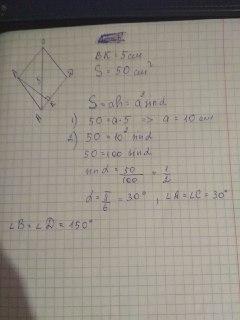 BK = 5 см
S = 50 см²
S = ah = a² sin α
1) 50 = a·5 => a = 10 см
2) 50 = 10² sin α
50 = 100 sin α
sin α = 50/100 = 1/2
α = π/6 = 30° , ∠A = ∠C = 30°
∠B = ∠D = 150°